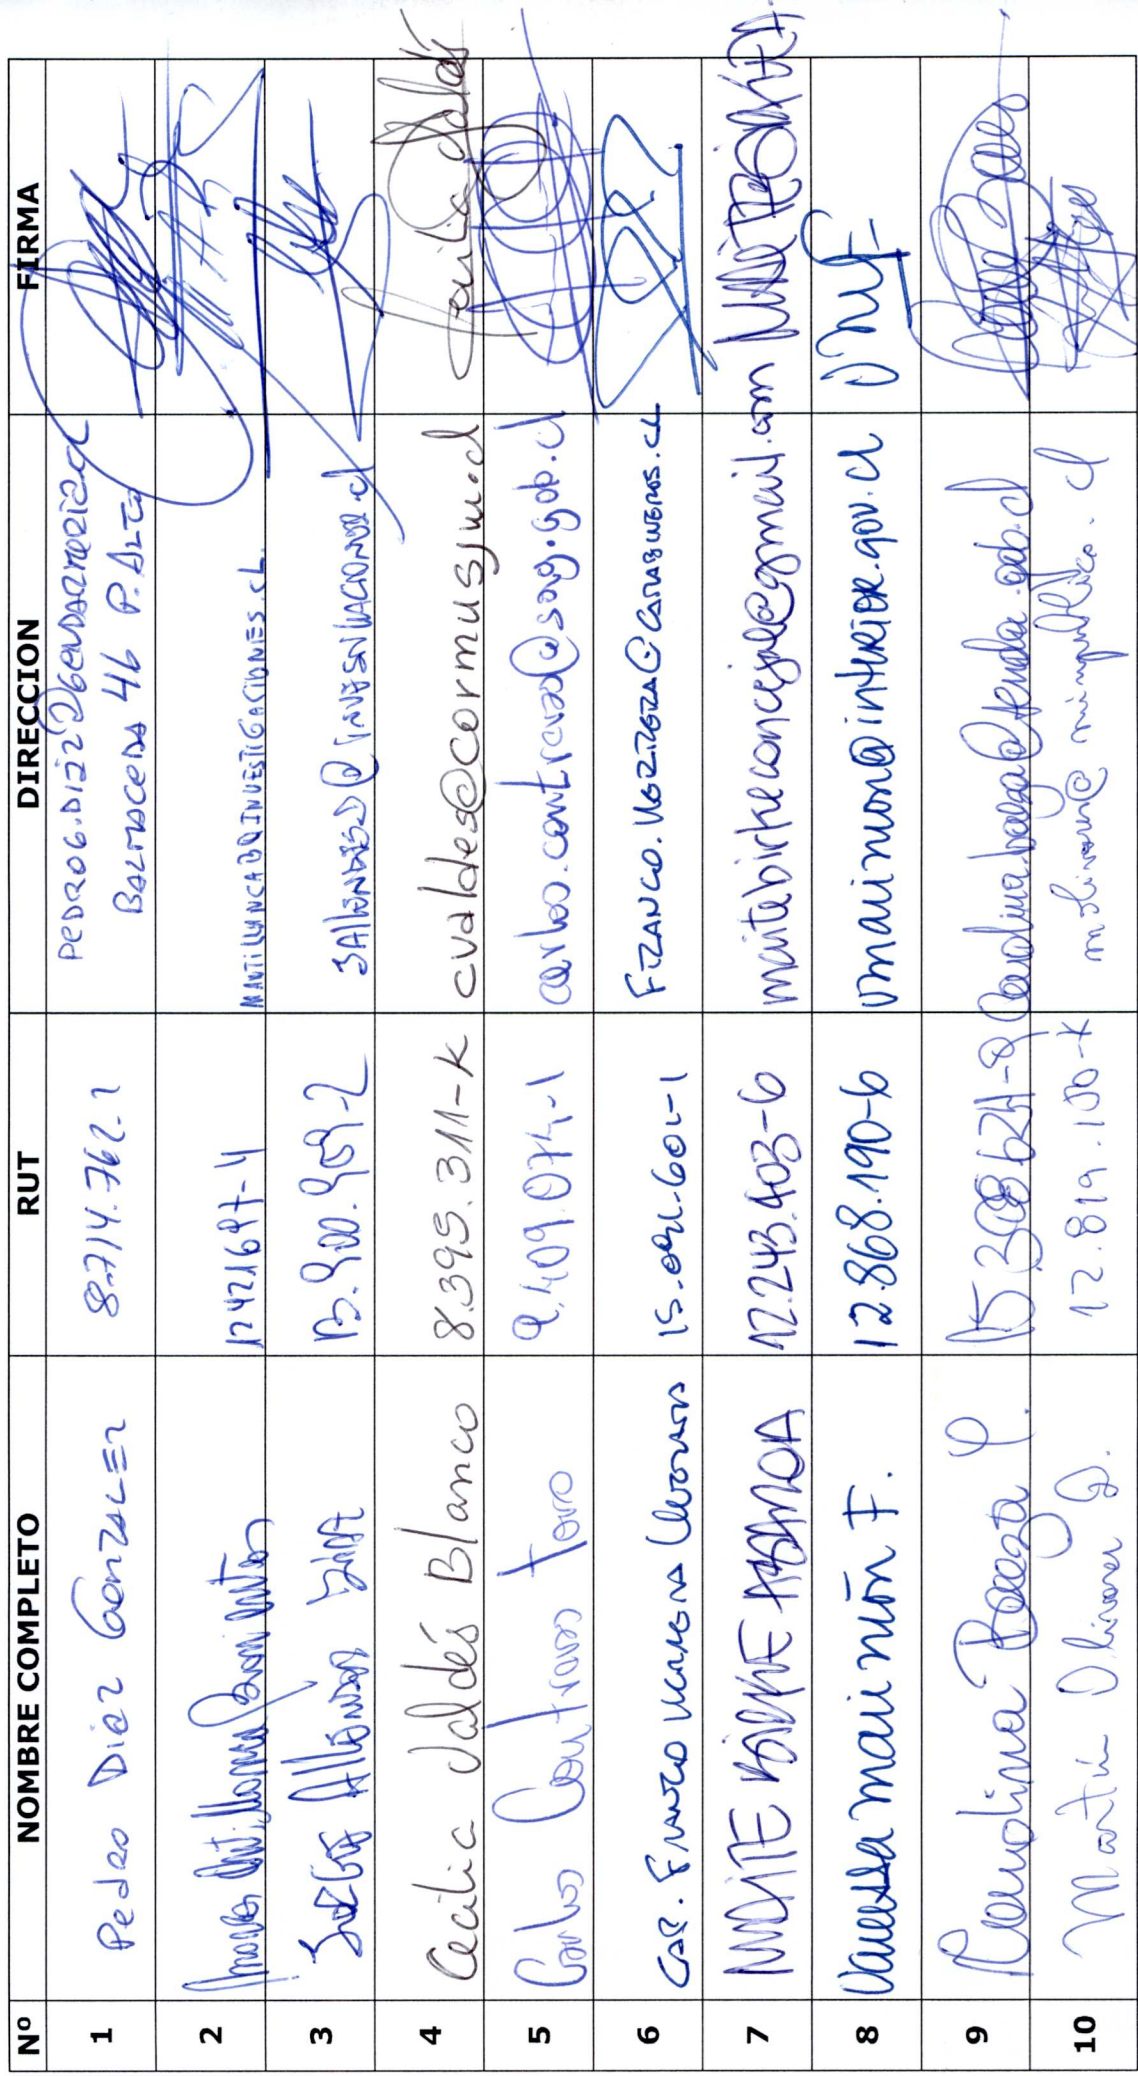 Nº NOMBRE COMPLETO RUT DIRECCION FIRMA
1 Pedro Diaz Gonzalez 8.714.762-1 PEDRO6.DIAZ@GENDARMERIA.cl
BALMACEDA 46 P. ALTO
2 12421697-4 MANTILLANCAB@INVESTIGACIONES.CL
3 JORGE Allendes 13.900.909-2 JAllendesD@investigaciones.cl
4 Cecilia Valdés Blanco 8.395.311-K cvaldes@cormusjm.cl Cecilia Valdés
5 Carlos Contreras Toro 9.409.074-1 carlos.contreras@sag.gob.cl
6 CAP. FRANCO 15.091.601-1 FRANCO.VERGARA@CARABINEROS.CL
7 MAITE BIRKE ABAROA 12.243.403-6 maitebirkeconcejal@gmail.com
8 Vanessa mainuón F. 12.868.190-6 vmainuon@interior.gov.cl
9 Carolina Baeza P. 15308624-9 carolina.baeza@senda.gob.cl
10 Martín Olivares D. 12.819.100-K molivares@minpublico.cl